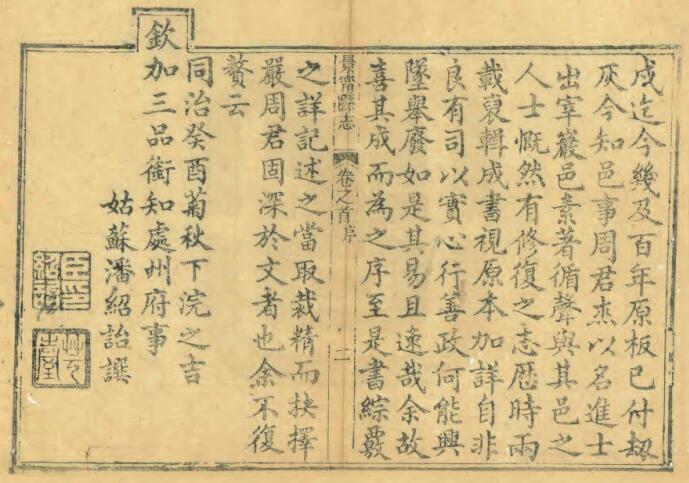 成迄今幾及百年原板已付刼
灰今知邑事周君杰以名進士
出宰巖邑素著循聲與其邑之
人士慨然有修復之志歴時兩
載裒輯成書視原本加詳自非
良有司以實心行善政何能興
墜舉廢如是其易且速哉余故
喜其成而為之序至是書綜覈
景甯縣志
卷之首序
二
之詳記述之當取裁精而抉擇
嚴周君固深於文者也余不復
贅云
同治癸酉菊秋下浣之吉
欽加三品銜知處州府事
姑蘇潘紹詒譔